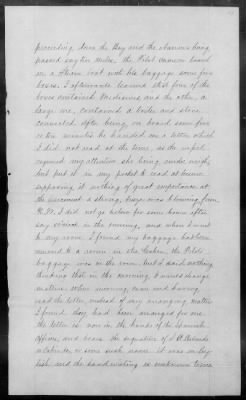 proceeding down the Bay and the steamer being
passed say ten miles, the Pilot came on board
in a Steam boat with his baggage some five
boxes. I afterwards learned that four of the
boxes contained Medicines and the other, a
large one, contained a boiler and stove
connected. After being on board some five
or ten minutes he handed me a letter which
I did not read at the time, as the vessel
required my attention she being under weigh,
but put it in my pocket to read at leisure
supposing it nothing of great importance at
the moment a strong breeze was blowing from
I did not go below for some hours after
say in the evening, and when I went
to my room I found my baggage had been
moved to a room in the Cabin, the Pilots
baggage was in the room, but I said nothing
thinking that in the morning I would change
matters when morning came and having
read the letter, instead of any arranging matters
I found they had been arranged for me
the letter is now in the hands of the Spanish
Officers, and bears the signature of
or some such name. it was in Eng-
lish and the handwriting is